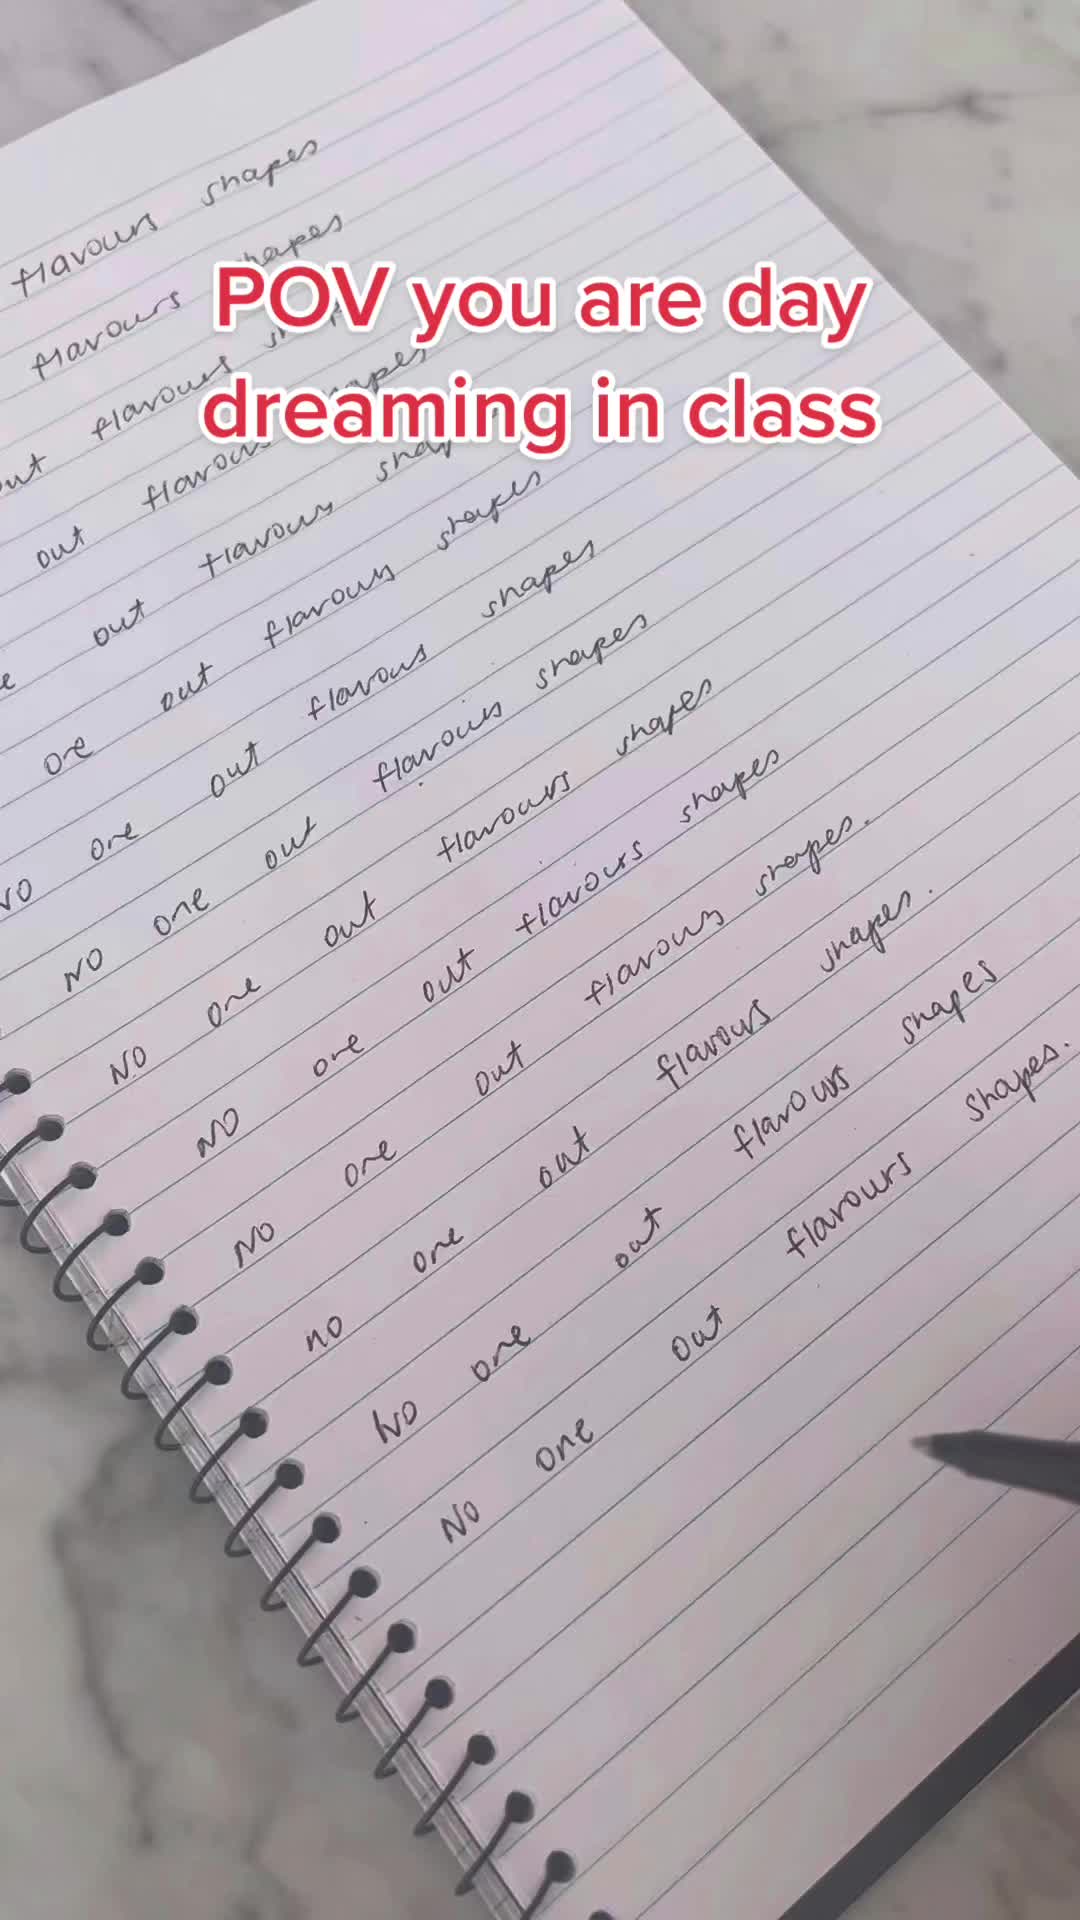 POV you are day
dreaming in class
flavours shapes
flavours hapes
out flavours
out flavours hapes
out flavours shap
one out flavours shapes
NO one out flavous shapes
NO one out flavours shapes
NO one out flavours shapes
NO one out flavours shapes
NO one out flavours shapes.
no one out flavours shapes.
No one out flavours shapes
No one out flavours shapes.